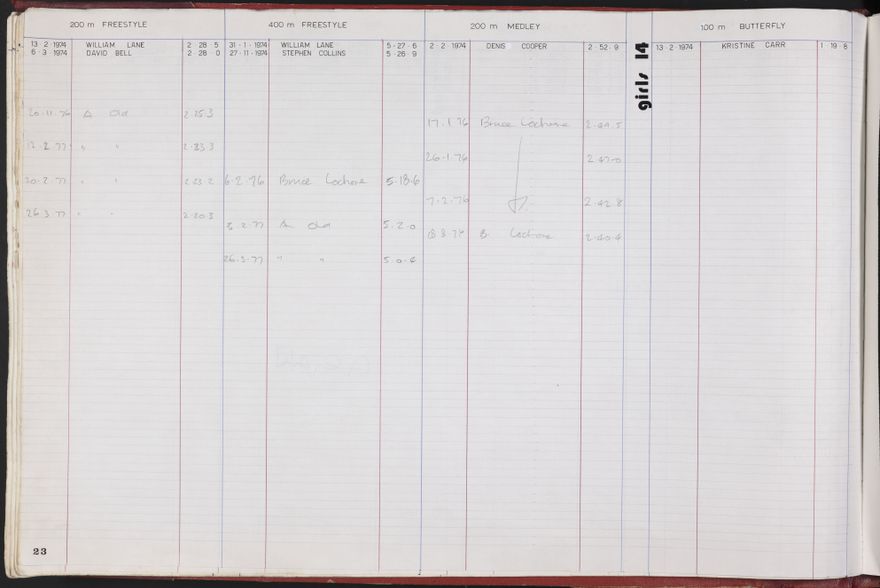 200 m FREESTYLE
13·2·1974 WILLIAM LANE 2·28·5
6·3·1974 DAVID BELL 2·28·0
20·11·76 A Old 2·25·3
12·2·77 " " 2·23·3
20·2·77 " " 2·23·2
26·3·77 " " 2·20·3
400 m FREESTYLE
31·1·1974 WILLIAM LANE 5·27·6
27·11·1974 STEPHEN COLLINS 5·26·9
6·2·76 Bruce Lochore 5·18·6
2·77 A Old 5·2·0
26·3·77 " " 5·0·4
200 m MEDLEY
2·2·1974 DENIS COOPER 2·52·9
17·1·76 Bruce Lochore 2·49·5
26·1·76 2·47·0
7·2·76 2·42·8
B. Lochore 2·40·4
girls 14
100 m BUTTERFLY
13·2·1974 KRISTINE CARR 1·19·8
23